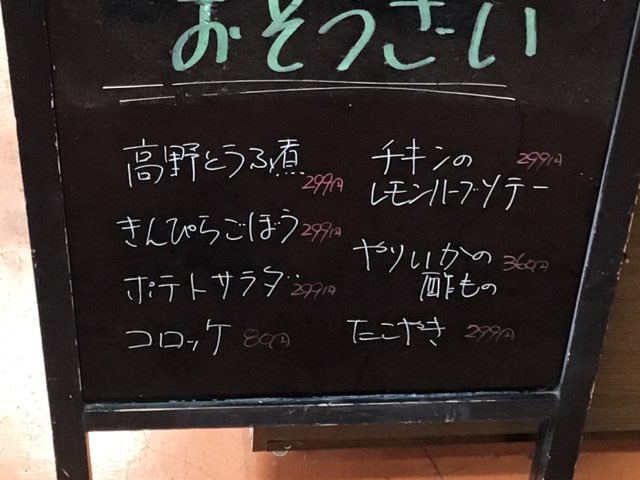 おそうざい
高野とうふ煮
299円
きんぴらごぼう 299円
ポテトサラダ 299円
コロッケ 80円
チキンの 299円
レモンハーブソテー
やりいかの 360円
酢もの
たこやき 299円